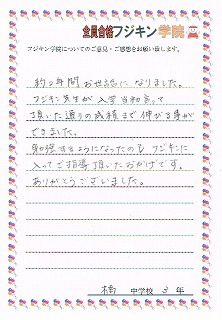 全員合格フジキン学院
フジキン学院についてのご意見・ご感想をお願い致します。
約2年間お世話になりました。
フジキン先生が入学当初言って
頂いた通りの成績まで伸ばす事が
できました。
勉強するようになったのもフジキンに
入ってご指導頂いたおかげです。
ありがとうございました。
橘 中学校 3年